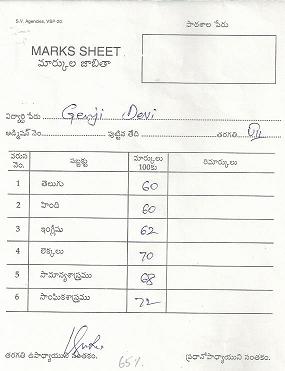 S.V. Agencies, VSP-20.
పాఠశాల పేరు
MARKS SHEET
మార్కుల జాబితా
విద్యార్థి పేరు Genji Devi
అడ్మిషన్ నెం. పుట్టిన తేది తరగతి VII
వరుస నెం. సబ్జెక్టు మార్కులు 100కు రిమార్కులు
1 తెలుగు 60
2 హింది 60
3 ఇంగ్లీషు 62
4 లెక్కలు 70
5 సామాన్యశాస్త్రము 68
6 సాంఘికశాస్త్రము 72
తరగతి ఉపాధ్యాయుని సంతకం. 65% ప్రధానోపాధ్యాయుని సంతకం.